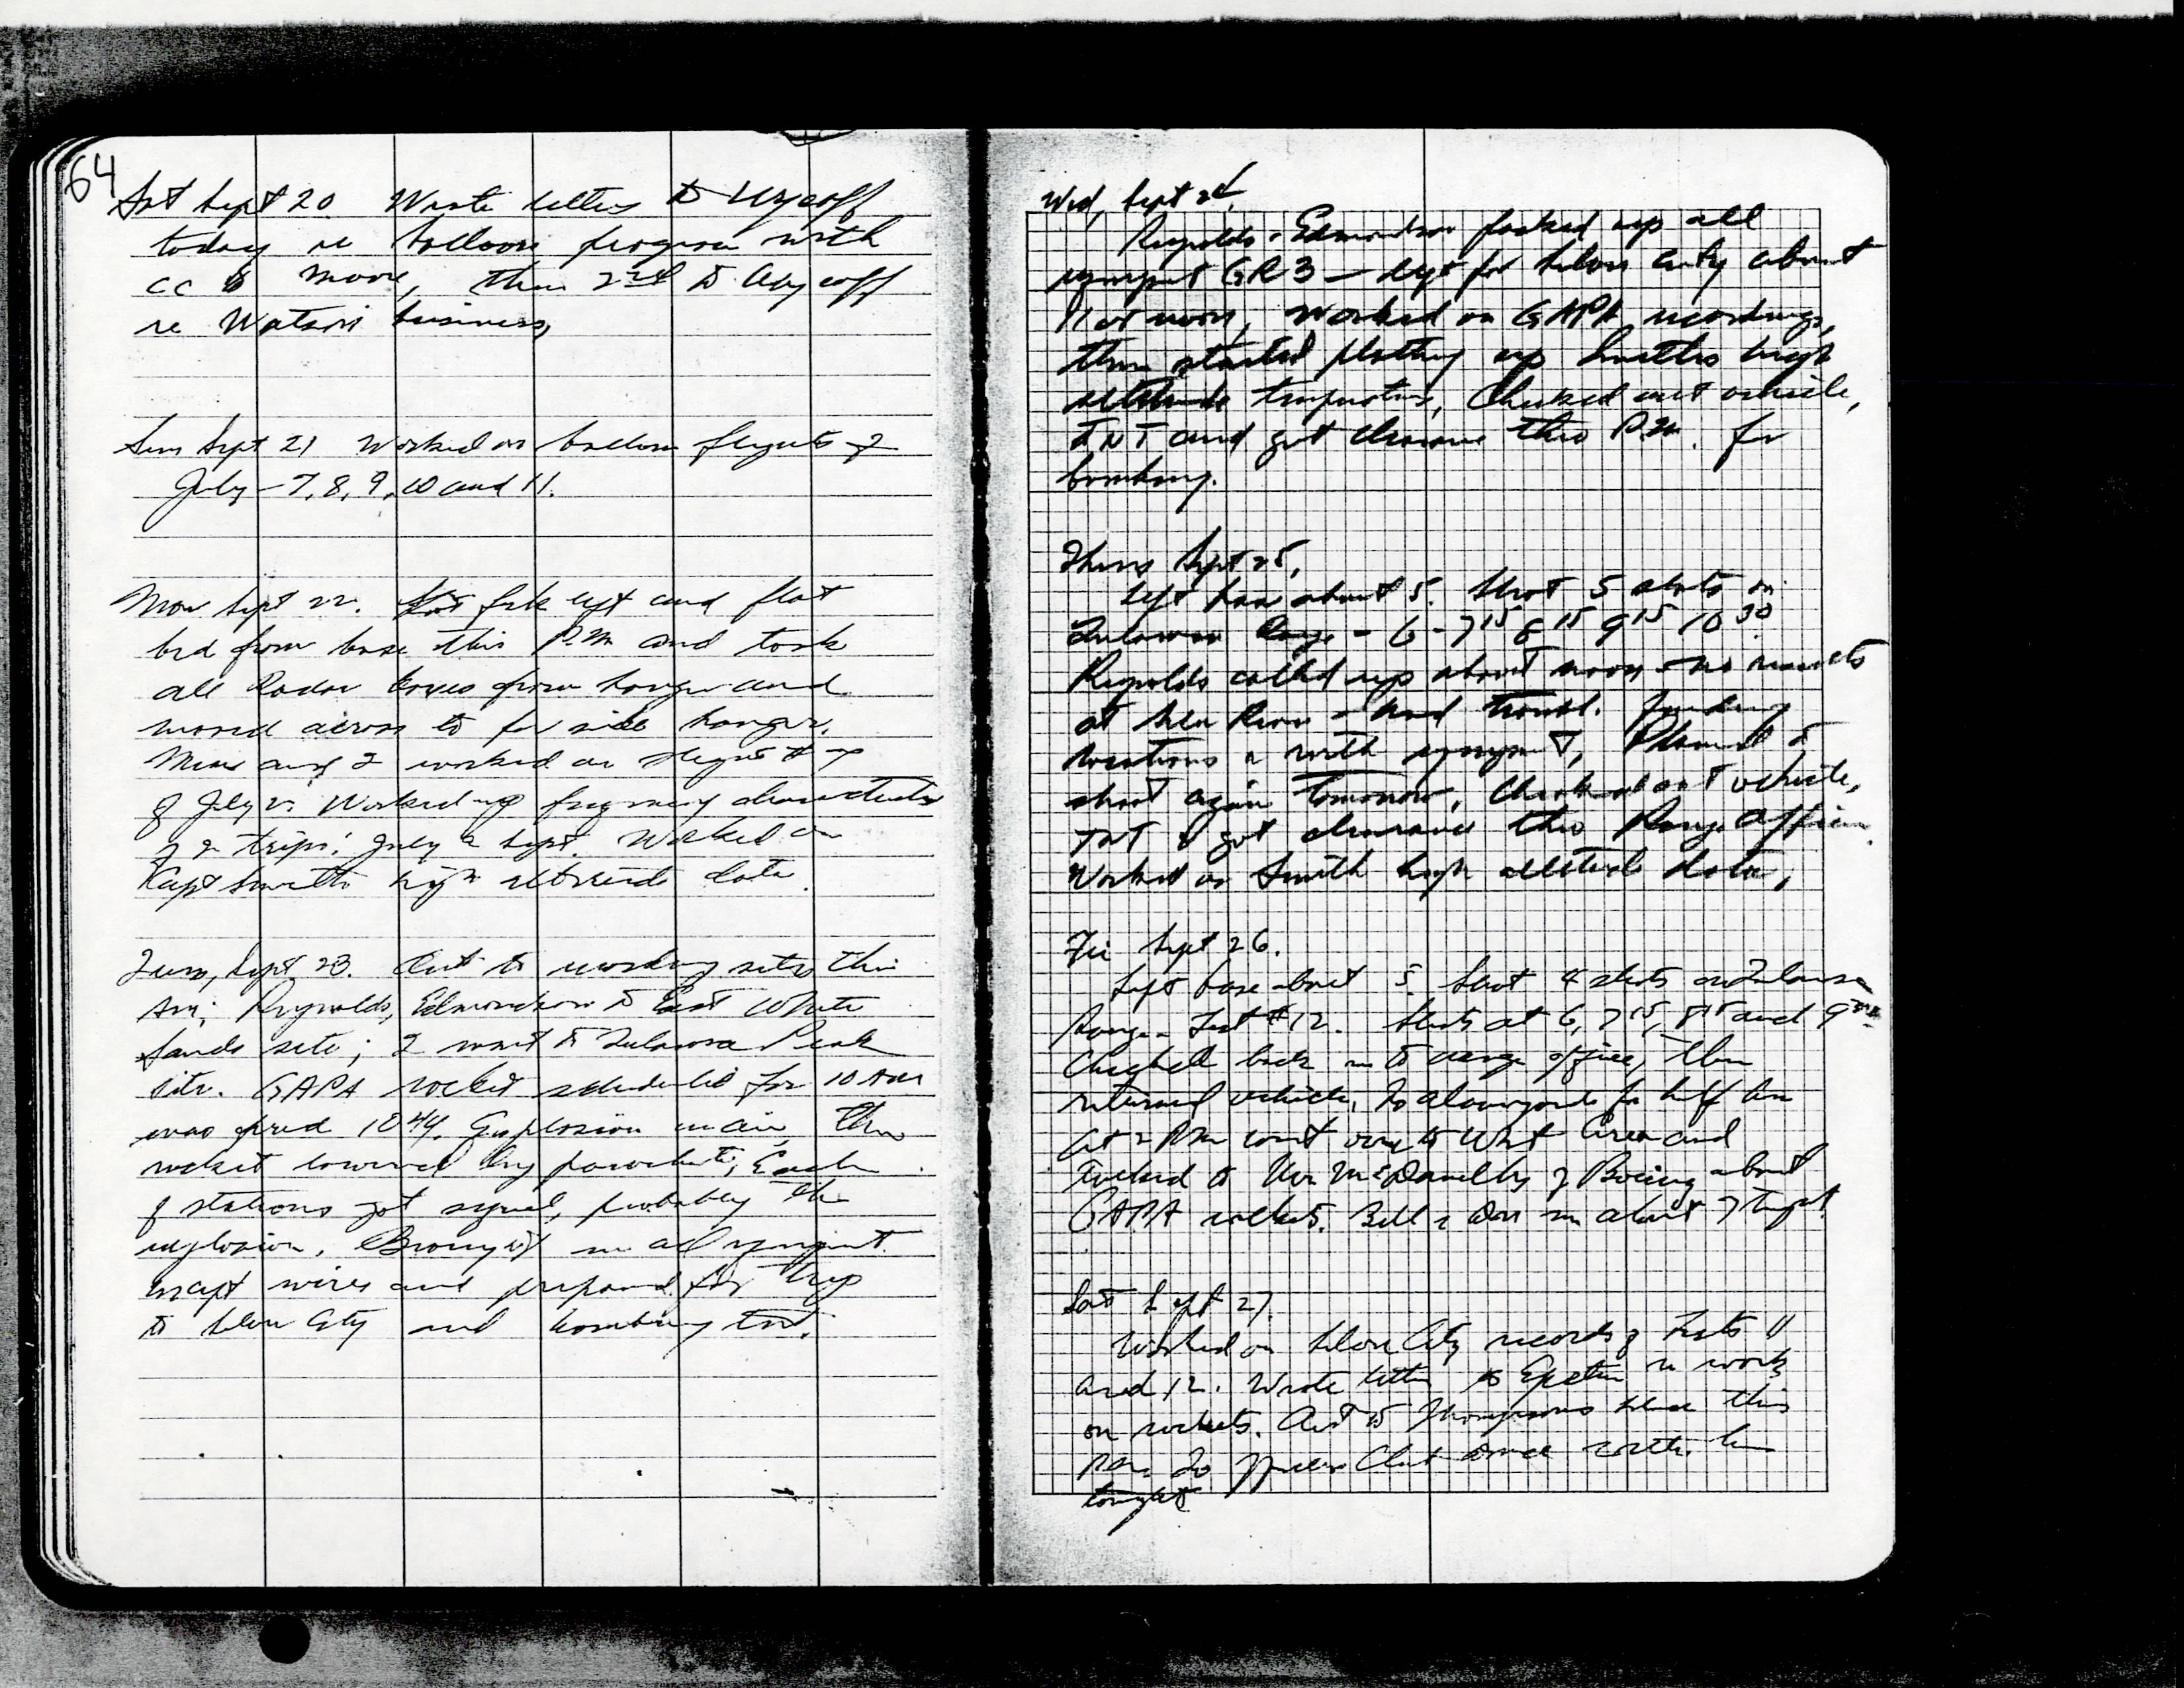 64
Sat Sept 20. Wrote letters to Wycoff
today re balloon program with
cc to Moore, then 2nd to Wycoff
re Watson business,
Sun Sept 21 Worked on balloon flights of
July - 7, 8, 9, 10 and 11.
Mon Sept 22. Got fork lift and flat
bed from base this P.M and took
all Radar boxes from hangar and
moved across to far side hangar.
and I worked on flight
of July Worked up frequency
of 2 trips: July & Sept. Worked on
Capt Smith high altitude data.
Tues, Sept. 23. Out to recording sites this
AM; Reynolds, Edmondson to East White
Sands site; I went to Tularosa Peak
site. GAPA rocket scheduled for 10 AM
was fired 10 44. Explosion in air, then
rocket lowered by parachute; Each
of stations got signal, probably the
explosion. Brought in all equipment
except wires and prepared for trip
to Silver City and bombing test.
Wed, Sept 24.
Reynolds & Edmondson packed up all
equipment GR3 — left for Silver City about
11 or noon, Worked on GAPA recordings,
then started plotting up Smiths high
altitude temperatures, Checked out vehicle,
TNT and got clearance this P.M. for
bombing.
Thurs Sept 25,
Left base about 5. Shot 5 shots on
Tularosa Range - 6 - 7 15 8 15 9 15 10 30
Reynolds called up about noon - no results
at - had trouble finding
locations & with equipment, Planned to
shoot again tomorrow, Checked out vehicle,
TNT & got clearance thro Range Officer.
Worked on Smith high altitude data,
Fri Sept 26.
Left base about 5. Shot 4 shots on Tularosa
Range - Test #12. Shots at 6, 7 15, 8 15 and 9
Checked back in to range office, then
returned vehicle. To Alamogordo for
At 2 PM went over to West Area and
talked to Mr McDonnell of Boeing about
GAPA rockets. Bill & Don in about 7 tonight.
Sat Sept 27.
Worked on Silver City records of Tests 11
and 12. Wrote letter to Epstein re work
on rockets. Out to Thompsons place this
PM. To Officers Club dance with
tonight